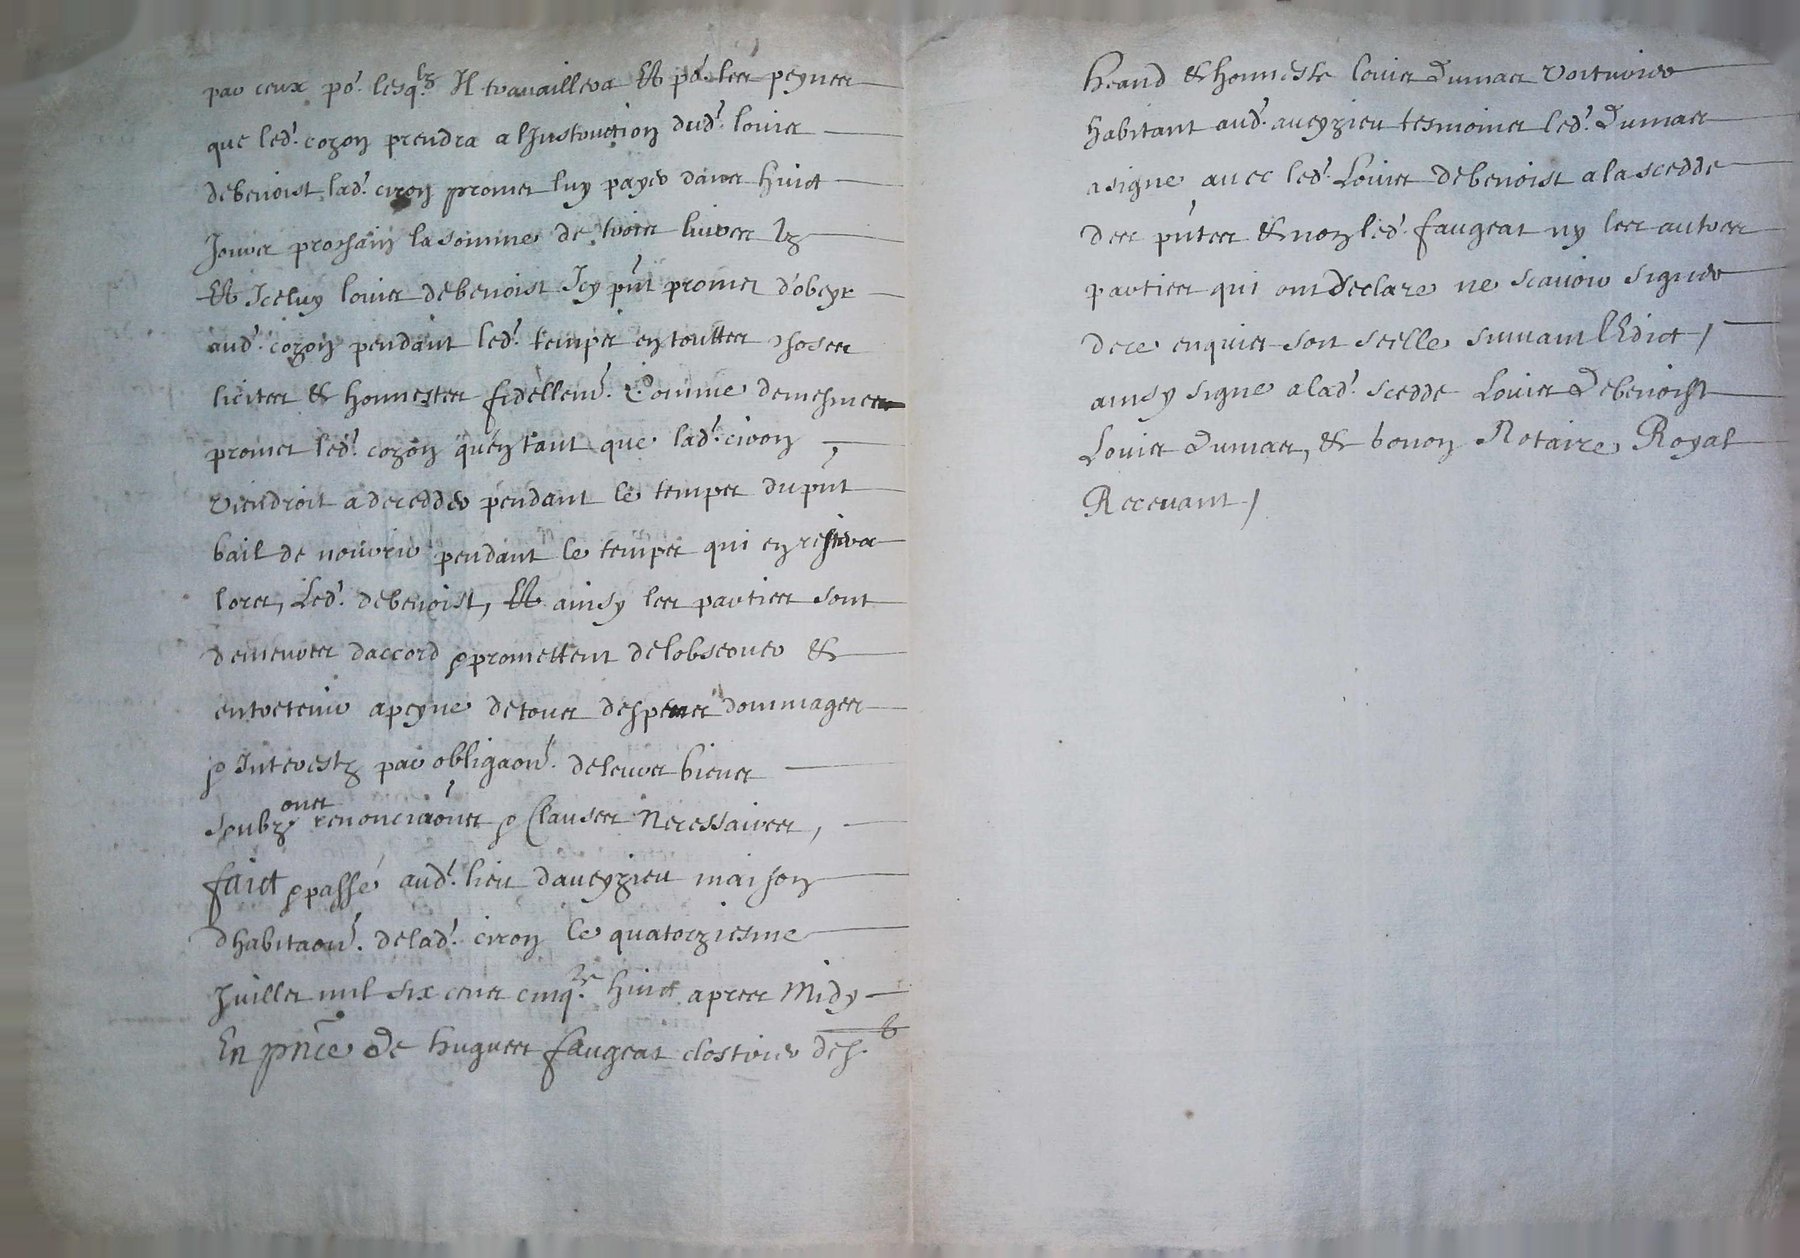 par ceux po.r lesq.lz Il travaillera Et po.r les peynes
que led.t cozon prendra a l'Instruction dud.t louis
debenoist lad.t ciron promet luy payer dans huict
Jours prochain la somme de trois livres lz
Et Iceluy louis debenoist Icy pn̄t promet d'obeyr
aud.t cozon pendant led.t temps en touttes choses
licites & honnestes fidellem.t Comme de mesmes
promet led.t cozon qu'en tant que lad.t ciron
viendroit a decedder pendant le temps du pn̄t
bail de nourrir pendant le temps qui en restera
lors, Led.t debenoist, Et ainsy les parties sont
demeures d'accord & promettent de l'observer &
entretenir a peyne de tous despens dommages
& Interestz par obligaōn. de leurs biens
soubz ōnes renonciaōns & Clauses Necessaires,
faict & passé aud.t lieu d'aveyzieu maison
d'habitaōn. de lad.t ciron le quatorziesme
Juillet mil six cens cinq.te huict apres Midy
En pn̄ce de hugues faugeat clostrier de s.t
heand & honneste louis Dumas Voiturier
habitant aud.t aveyzieu tesmoins led.t Dumas
a signe avec led.t Louis debenoist a la scedde
des pn̄tes & non led.t faugeat ny les autres
parties qui ont Declare ne scavoir signer
de ce enquis soit seelle suivant l'Edict /
ainsy signe a lad.t scedde Louis Debenoist
Louis Dumas, & bonon Notaire Royal
Recevant /